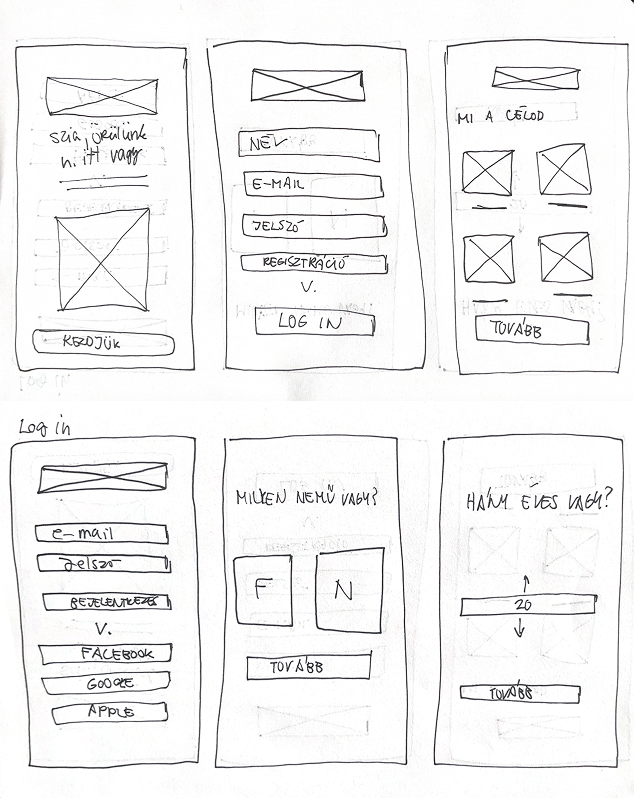 szia, örülünk
h itt vagy
KEZDJÜK
NÉV
E-MAIL
JELSZÓ
REGISZTRÁCIÓ
V.
LOG IN
MI A CÉLOD
TOVÁBB
Log in
e-mail
Jelszó
BEJELENTKEZÉS
V.
FACEBOOK
GOOGLE
APPLE
MILYEN NEMŰ VAGY?
F
N
TOVÁBB
HÁNY ÉVES VAGY?
20
TOVÁBB